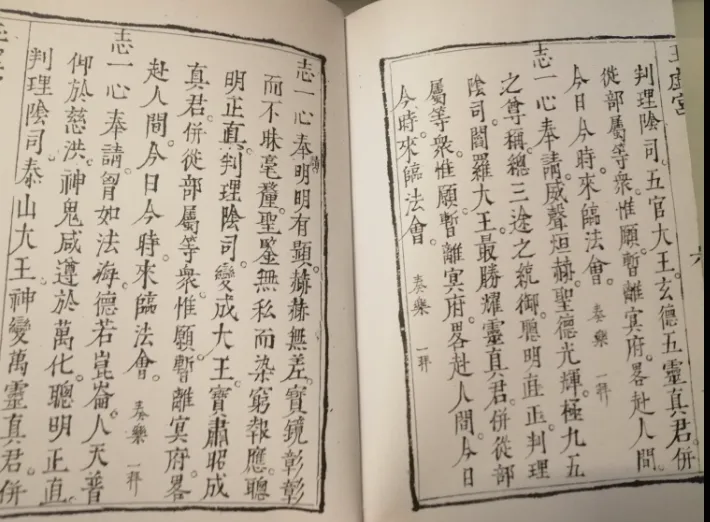 玉虛宮
六
判理陰司。五官大王。玄德五靈真君。併
從部屬等衆。惟願。暫離冥府。畧赴人間。
今日今時。來臨法會。奏樂 一拜
志一心奉請。威聲烜赫。聖德光輝。極九五
之尊稱。總三途之統御。聰明直正。判理
陰司。閻羅大王。最勝耀靈真君。併從部
屬等衆。惟願。暫離冥府。畧赴人間。今日
今時。來臨法會。奏樂 一拜
志一心奉請明明有顯。赫赫無差。寶鏡彰彰
而不昧毫釐。聖鑒無私而染窮報應。聰
明正直。判理陰司。變成大王。寶肅昭成
真君。併從部屬等衆。惟願暫離冥府。畧
赴人間。今日今時。來臨法會。奏樂 一拜
志一心奉請。曾如法海。德若崑崙。人天普
仰於慈洪。神鬼咸遵於萬化。聰明正直。
判理陰司。泰山大王。神變萬靈真君。併